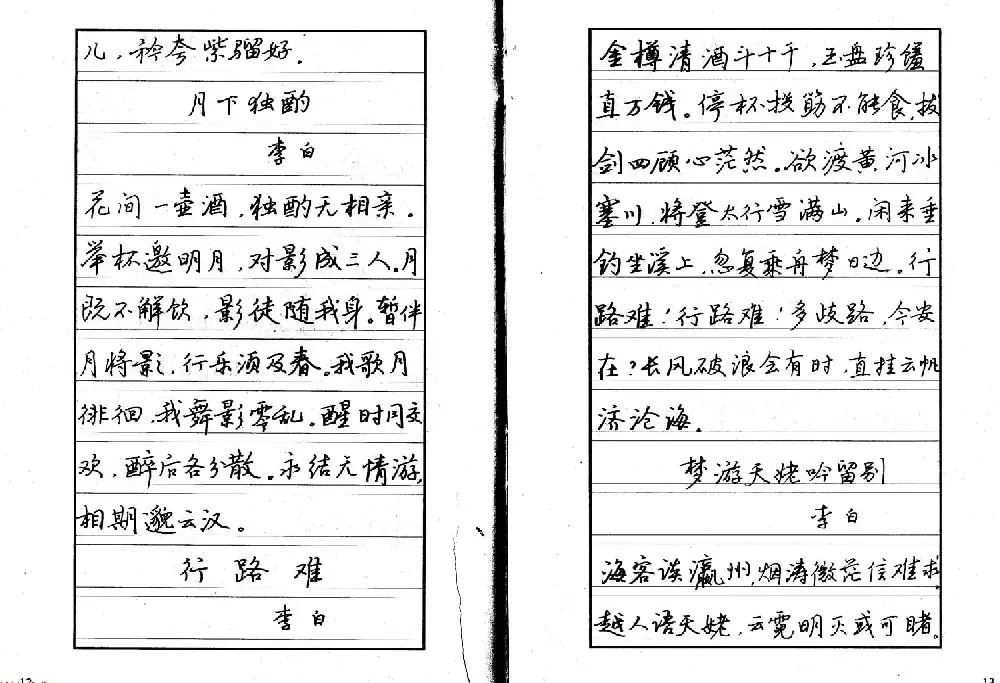 儿，矜夸紫骝好.
月下独酌
李白
花间一壶酒，独酌无相亲。
举杯邀明月，对影成三人。月
既不解饮，影徒随我身。暂伴
月将影，行乐须及春。我歌月
徘徊，我舞影零乱。醒时同交
欢，醉后各分散。永结无情游，
相期邈云汉。
行路难
李白
12
金樽清酒斗十千，玉盘珍馐
直万钱。停杯投筯不能食，拔
剑四顾心茫然。欲渡黄河冰
塞川，将登太行雪满山。闲来垂
钓坐溪上，忽复乘舟梦日边。行
路难！行路难！多歧路，今安
在？长风破浪会有时，直挂云帆
济沧海。
梦游天姥吟留别
李白
海客谈瀛州，烟涛微茫信难求，
越人语天姥，云霓明灭或可睹。
13